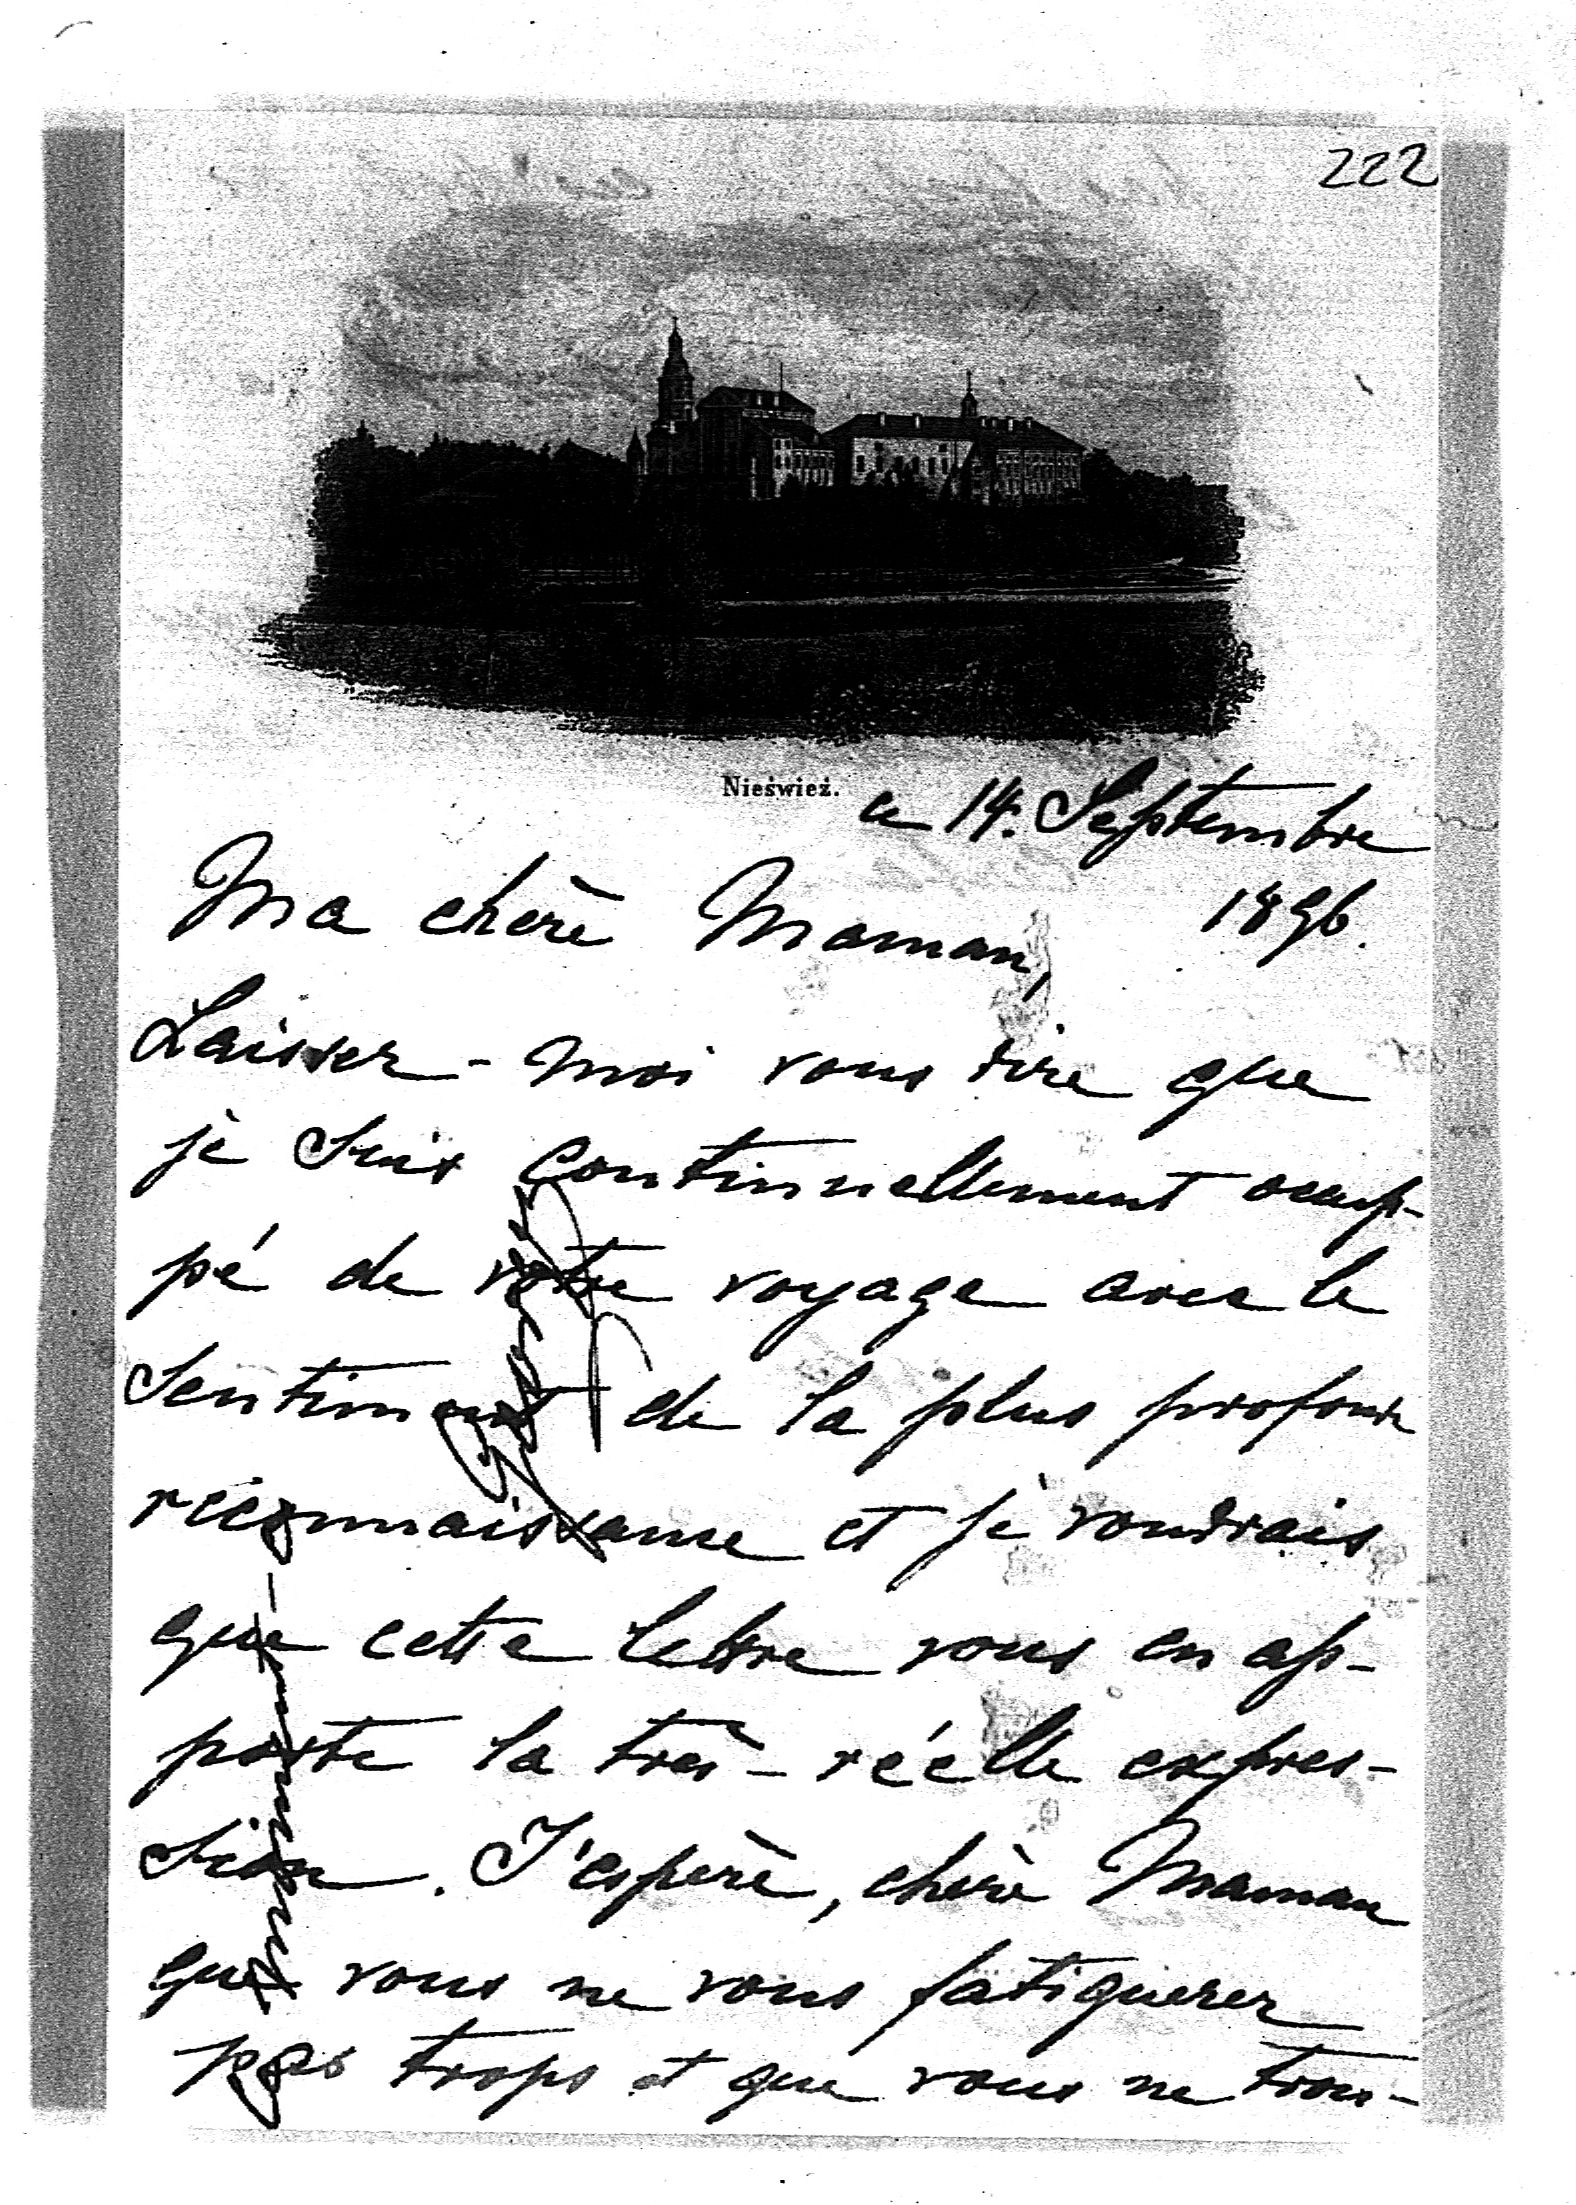 222
Nieśwież.
ce 14. Septembre
1896.
Ma chère Maman,
Laisser-moi vous dire que
je suis continuellement occup-
pé de votre voyage avec le
sentiment de la plus profonde
reconnaissance et je voudrais
que cette lettre vous en ap-
porte la très-réelle expres-
sion. J'espère, chère Maman
que vous ne vous fatiguerez
pas trops et que vous ne trou-